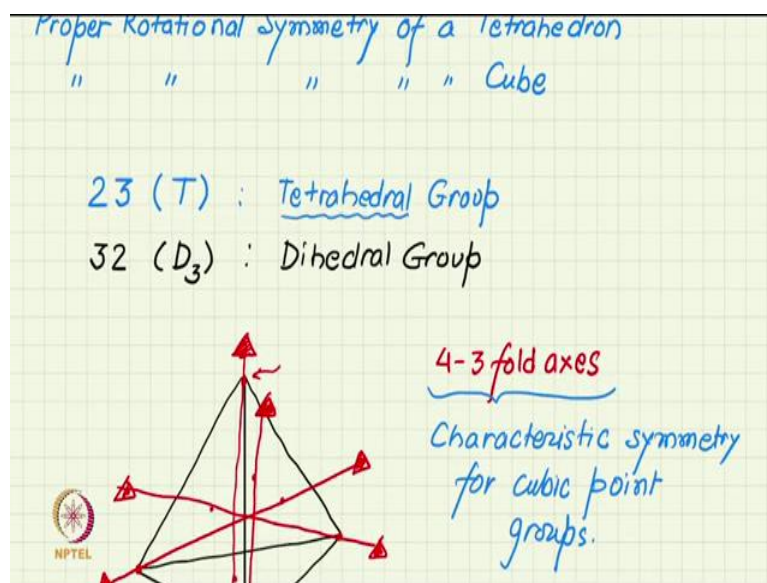 Proper Rotational Symmetry of a Tetrahedron
" " " " " Cube
23 (T) : Tetrahedral Group
32 (D₃) : Dihedral Group
4-3 fold axes
Characteristic symmetry
for cubic point
groups.
NPTEL